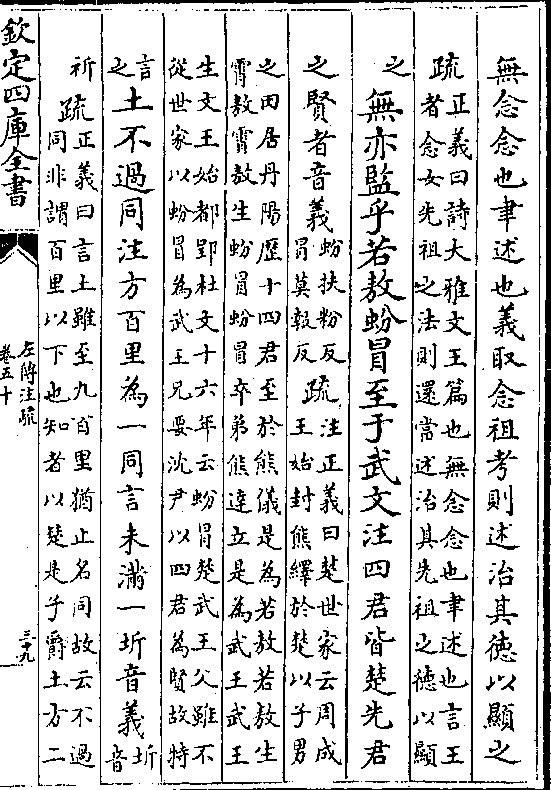 無念念也聿述也義取念祖考則述治其德以顯之
疏正義曰詩大雅文王篇也無念念也聿述也言王
者念女先祖之法則還當述治其先祖之德以顯
之無亦監乎若敖蚡冒至于武文注四君皆楚先君
之賢者音義蚡扶粉反
冒莫報反
疏注正義曰楚世家云周成
王始封熊繹於楚以子男
之田居丹陽歷十四君至於熊儀是為若敖若敖生
霄敖霄敖生蚡冒蚡冒卒弟熊達立是為武王武王
生文王始都郢杜文十六年云蚡冒楚武王父雖不
從世家以蚡冒為武王兄要沈尹以四君為賢故特
言
之
土不過同注方百里為一同言未滿一圻音義圻
音
祈疏正義曰言土雖至九百里猶止名同故云不過
同非謂百里以下也知者以楚是子爵土方二
欽定四庫全書
左傳注疏
卷五十
三十九